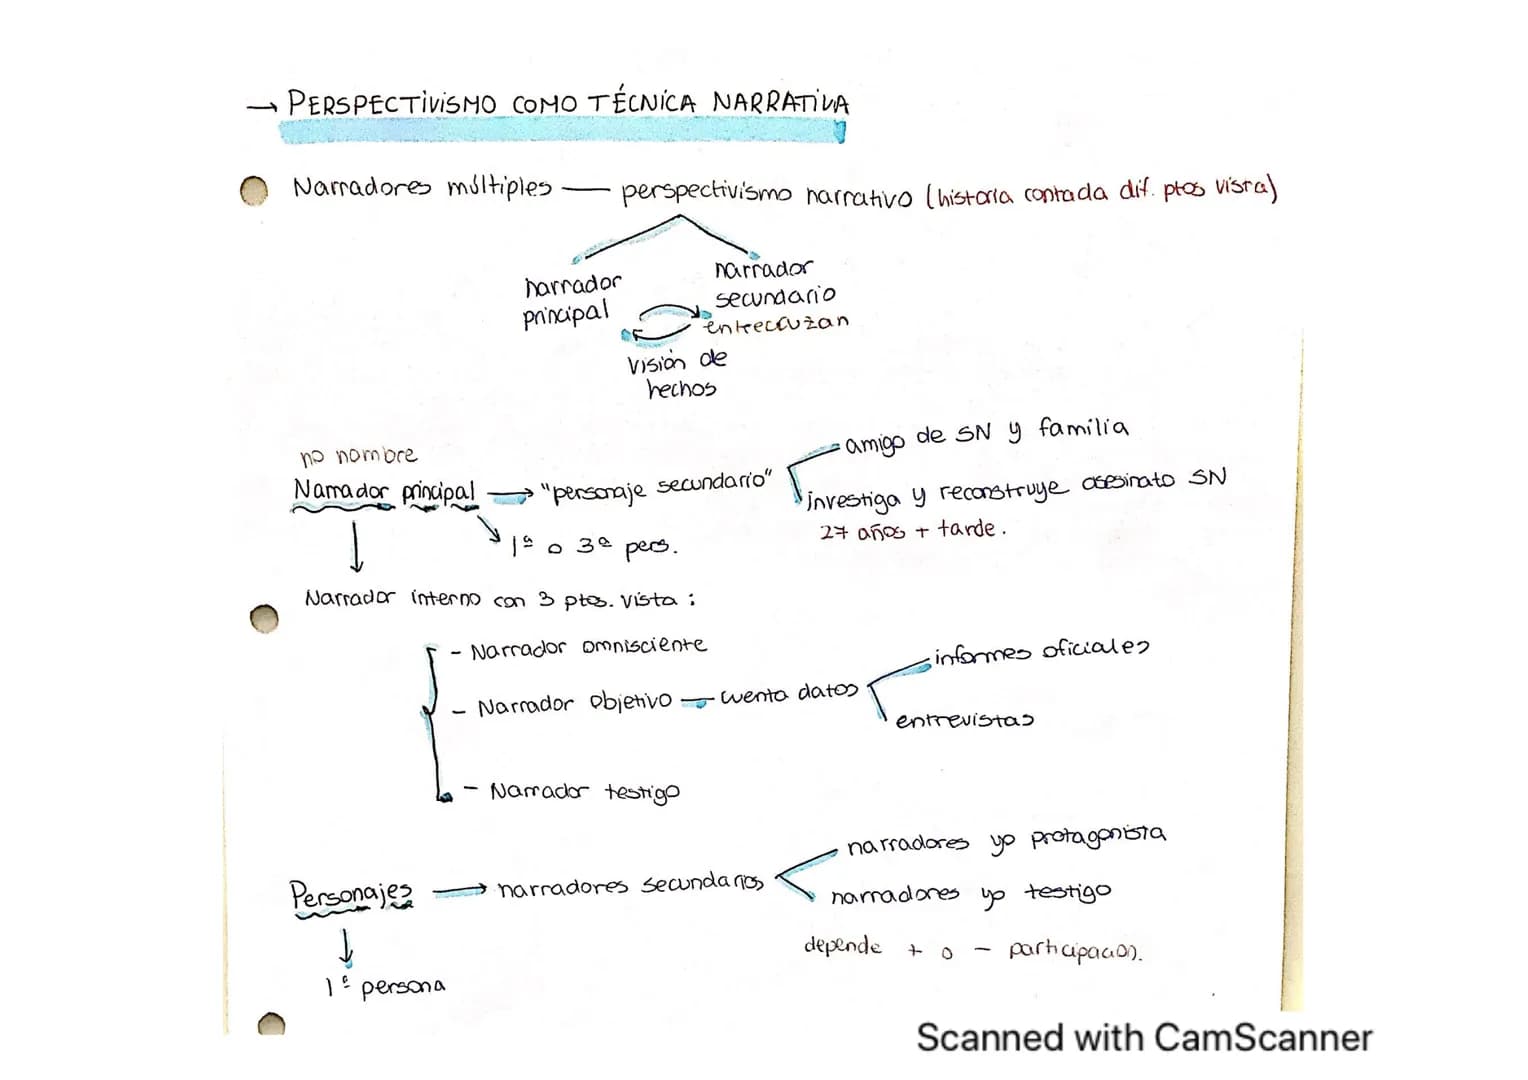 → PERSPECTIVISMO COMO TÉCNICA NARRATIVA
Narradores múltiples — perspectivismo narrativo (historia contada dif. ptos vista)
narrador principal
narrador secundario
entrecruzan
visión de hechos
no nombre
Narrador principal → "personaje secundario"
amigo de SN y familia
investiga y reconstruye asesinato SN
27 años + tarde.
1ª o 3ª pers.
Narrador interno con 3 ptos. vista :
- Narrador omnisciente
- Narrador objetivo — cuenta datos
informes oficiales
entrevistas
- Narrador testigo
Personajes → narradores secundarios
narradores yo protagonista
narradores yo testigo
depende + o - participación.
1ª persona
Scanned with CamScanner